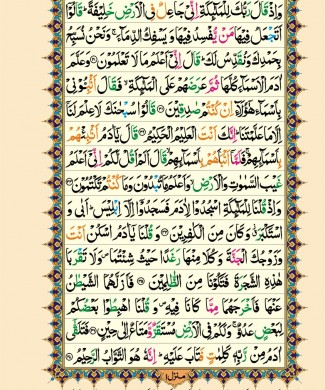 وَاِذْ قَالَ رَبُّكَ لِلْمَلٰٓئِكَةِ اِنِّیْ جَاعِلٌ فِی الْاَرْضِ خَلِیْفَةً ؕ قَالُوْۤا
اَتَجْعَلُ فِیْهَا مَنْ یُّفْسِدُ فِیْهَا وَیَسْفِكُ الدِّمَآءَ ۚ وَنَحْنُ نُسَبِّحُ
بِحَمْدِكَ وَنُقَدِّسُ لَكَ ؕ قَالَ اِنِّیْۤ اَعْلَمُ مَا لَا تَعْلَمُوْنَ ۝ وَعَلَّمَ
اٰدَمَ الْاَسْمَآءَ كُلَّهَا ثُمَّ عَرَضَهُمْ عَلَی الْمَلٰٓئِكَةِ ۙ فَقَالَ اَنْۢبِـُٔوْنِیْ
بِاَسْمَآءِ هٰۤؤُلَآءِ اِنْ كُنْتُمْ صٰدِقِیْنَ ۝ قَالُوْا سُبْحٰنَكَ لَا عِلْمَ لَنَاۤ
اِلَّا مَا عَلَّمْتَنَا ؕ اِنَّكَ اَنْتَ الْعَلِیْمُ الْحَكِیْمُ ۝ قَالَ یٰۤاٰدَمُ اَنْۢبِئْهُمْ
بِاَسْمَآئِهِمْ ۚ فَلَمَّاۤ اَنْۢبَاَهُمْ بِاَسْمَآئِهِمْ ۙ قَالَ اَلَمْ اَقُلْ لَّكُمْ اِنِّیْۤ اَعْلَمُ
غَیْبَ السَّمٰوٰتِ وَالْاَرْضِ ۙ وَاَعْلَمُ مَا تُبْدُوْنَ وَمَا كُنْتُمْ تَكْتُمُوْنَ ۝
وَاِذْ قُلْنَا لِلْمَلٰٓئِكَةِ اسْجُدُوْا لِاٰدَمَ فَسَجَدُوْۤا اِلَّاۤ اِبْلِیْسَ ؕ اَبٰی وَ
اسْتَكْبَرَ ٭ۗ وَكَانَ مِنَ الْكٰفِرِیْنَ ۝ وَقُلْنَا یٰۤاٰدَمُ اسْكُنْ اَنْتَ
وَزَوْجُكَ الْجَنَّةَ وَكُلَا مِنْهَا رَغَدًا حَیْثُ شِئْتُمَا ۪ وَلَا تَقْرَبَا
هٰذِهِ الشَّجَرَةَ فَتَكُوْنَا مِنَ الظّٰلِمِیْنَ ۝ فَاَزَلَّهُمَا الشَّیْطٰنُ
عَنْهَا فَاَخْرَجَهُمَا مِمَّا كَانَا فِیْهِ ۪ وَ قُلْنَا اهْبِطُوْا بَعْضُكُمْ
لِبَعْضٍ عَدُوٌّ ۚ وَلَكُمْ فِی الْاَرْضِ مُسْتَقَرٌّ وَّمَتَاعٌ اِلٰی حِیْنٍ ۝ فَتَلَقّٰۤی
اٰدَمُ مِنْ رَّبِّهٖ كَلِمٰتٍ فَتَابَ عَلَیْهِ ؕ اِنَّهٗ هُوَ التَّوَّابُ الرَّحِیْمُ ۝
منزل ۱